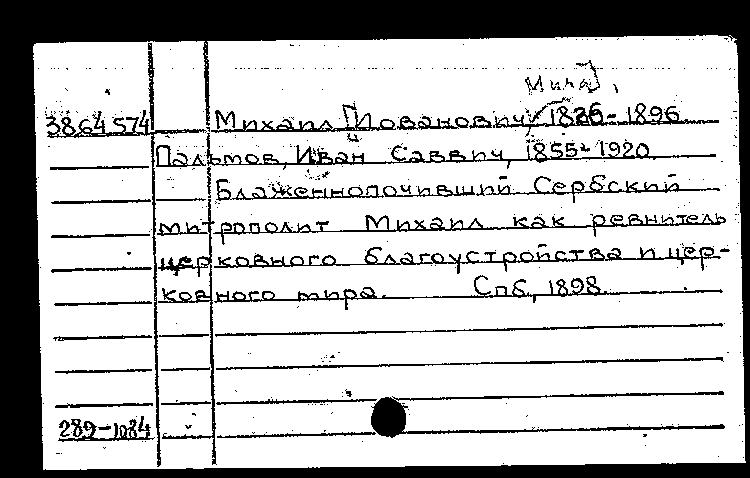 Мича],
3864574 Михаил [Иованович, 1826-1896.
Пальмов, Иван Саввич, 1855-1920.
Блаженнопочивший Сербский
митрополит Михаил как ревнитель
церковного благоустройства и цер-
ковного мира. Спб, 1898.
289-1084